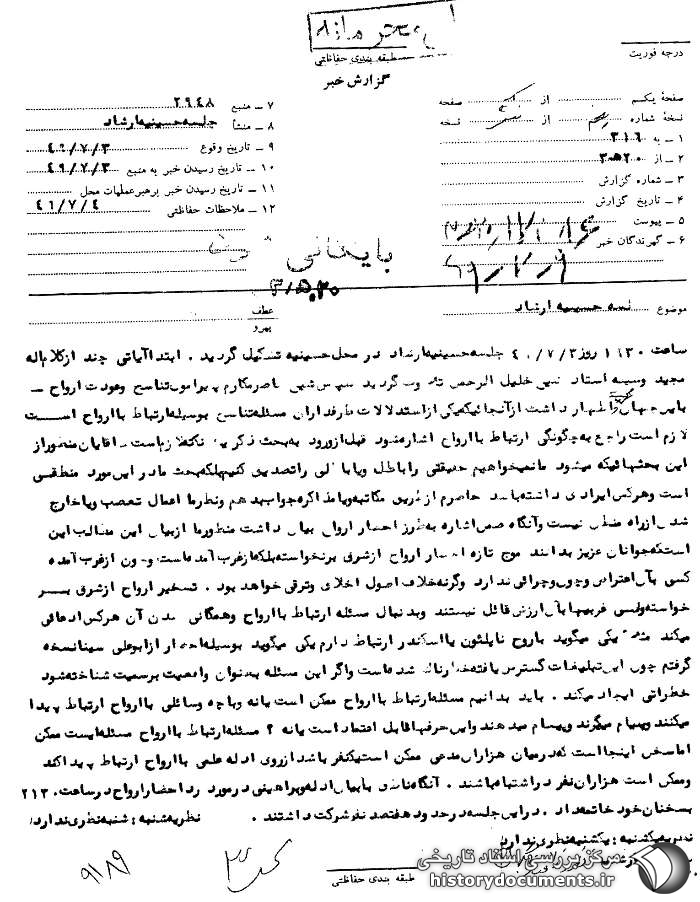 محرمانه
طبقه بندی حفاظتی
درجه فوریت
گزارش خبر
صفحهٔ یکم از صفحه
نسخهٔ شماره از نسخه
۱ ـ به ۳۱۶
۲ ـ از
۳ ـ شماره گزارش
۴ ـ تاریخ گزارش
۵ ـ پیوست
۶ ـ گیرندگان خبر
۷ ـ منبع ۲۹۴۸
۸ ـ منشأ جلسه حسینیه ارشاد
۹ ـ تاریخ وقوع ۴۹/۷/۳
۱۰ ـ تاریخ رسیدن خبر به منبع ۴۹/۷/۳
۱۱ ـ تاریخ رسیدن خبر برهبر عملیات محل
۱۲ ـ ملاحظات حفاظتی
بایگانی
موضوع حسینیه ارشاد
عطف
پیرو
ساعت روز جلسه حسینیه ارشاد در محل حسینیه تشکیل گردید . ابتدا آیاتی چند از کلام اله
مجید وسیله استاد خلیل الرحمن گردید سپس ناصر مکارم پیرامون تناسخ وعودت ارواح ـ
باین جهان اظهار داشت از آنجائیکه یکی از استدلالات طرفداران مسئله تناسخ بوسیله ارتباط با ارواح است
لازم است راجع به چگونگی ارتباط با ارواح اشاره شود قبل از ورود به بحث ذکر نکته لازم است آقایان منظور از
این بحثها اینکه میشود ما نمیخواهیم حقیقتی را باطل ویا باطلی را تصدیق کنیم بلکه بحث ما در این مورد منطقی
است وهرکس ایرادی داشته باشد حاضرم از طریق مکاتبه ویا مذاکره جواب بدهم ونظر ما اعمال تعصب ویا خارج
شدن از راه منطق نیست وآنگاه ضمن اشاره به طرز احضار ارواح بیان داشت منظور ما از بیان این مطالب این
است که جوانان عزیز بدانند موج تازه احضار ارواح از شرق برنخواسته بلکه از غرب آمده است و چون از غرب آمده
کسی بآن اعتراض وچون وچرائی ندارد وگرنه خلاف اصول اخلاقی وترقی خواهد بود . تسخیر ارواح از شرق بر
خواسته ولی غربیها بآن ارزشی قائل نیستند وبدنبال مسئله ارتباط با ارواح وهمگانی شدن آن هرکس ادعائی
میکند مثلا یکی میگوید با روح ناپلئون یا اسکندر ارتباط دارم یکی میگوید بوسیله احضار از ابوعلی سینا نسخه
گرفتم چون این تبلیغات گسترش یافته خطرناک شده است واگر این مسئله بعنوان واقعیت برسمیت شناخته شود
خطراتی ایجاد میکند . باید بدانیم مسئله ارتباط با ارواح ممکن است یا نه وبا چه وسائلی با ارواح ارتباط پیدا
میکنند وپیام میگیرند وپیام میدهند واین حرفها قابل اعتماد است یا نه ؟ مسئله ارتباط با ارواح مسئله ایست ممکن
اما سخن اینجا است که در میان هزاران مدعی ممکن است یکنفر باشد از روی ادله علمی با ارواح ارتباط پیدا کند
وممکن است هزاران نفر در اشتباه باشند . آنگاه نامبرده با بیان ادله وبراهینی در مورد رد احضار ارواح در ساعت
بسخنان خود خاتمه داد . در این جلسه در حدود هفتصد نفر شرکت داشتند . نظریه شنبه : شنبه نظری ندارد
نظریه یکشنبه : یکشنبه نظری ندارد
طبقه بندی حفاظتی
مرکز بررسی اسناد تاریخی
historydocuments.ir